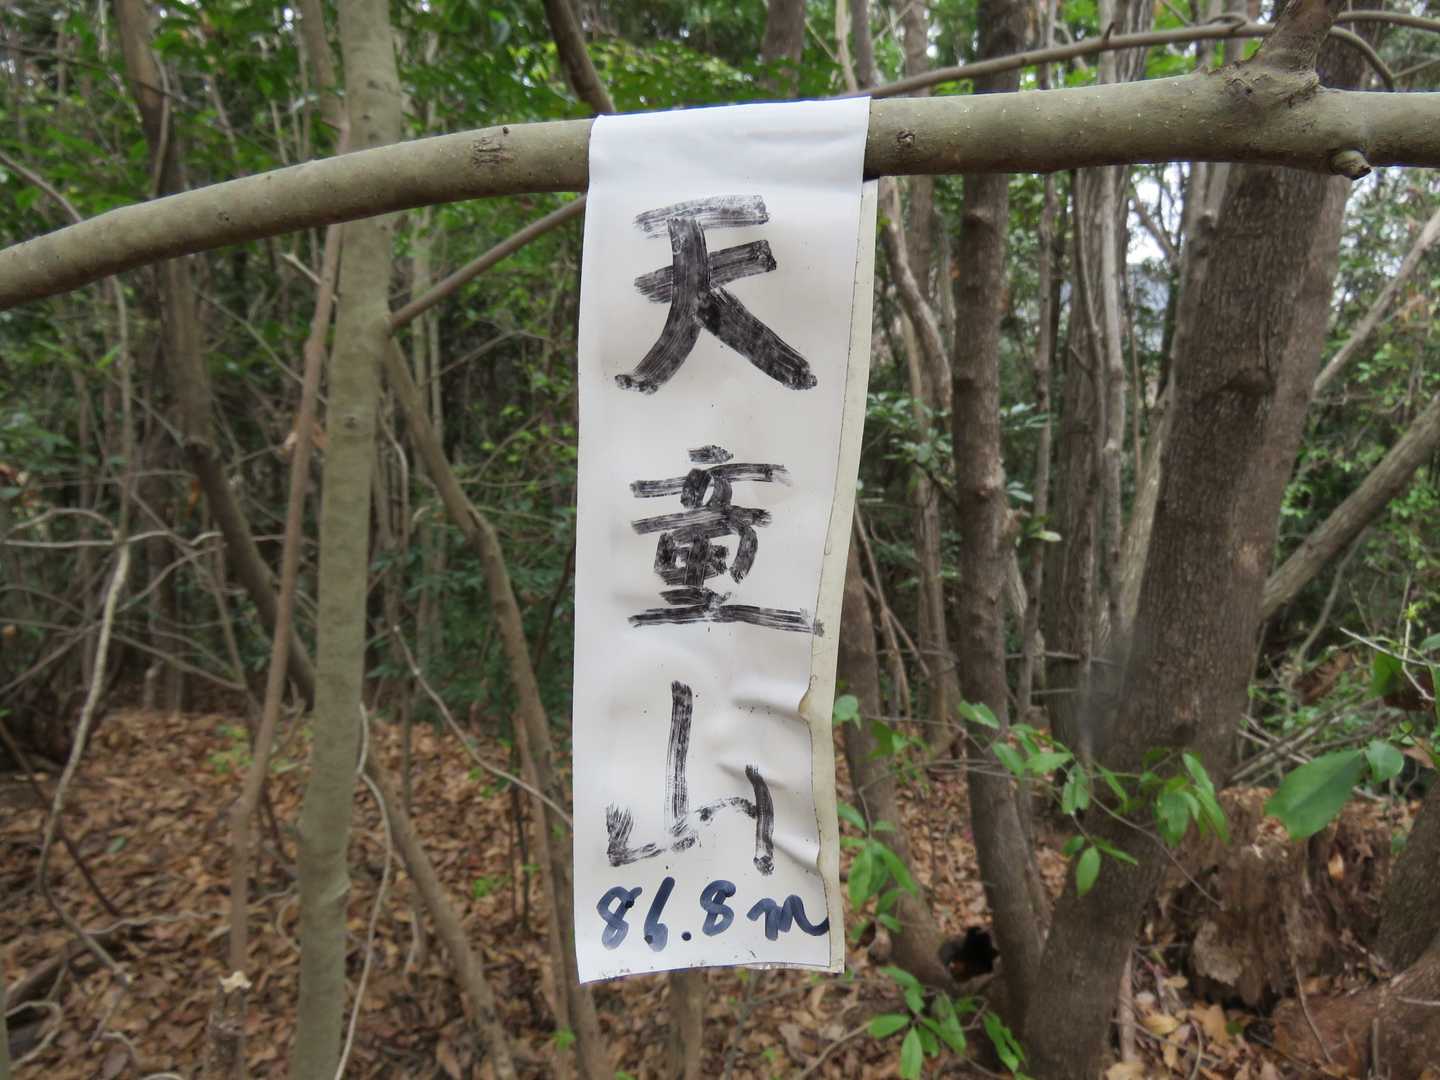 天童山
86.8m